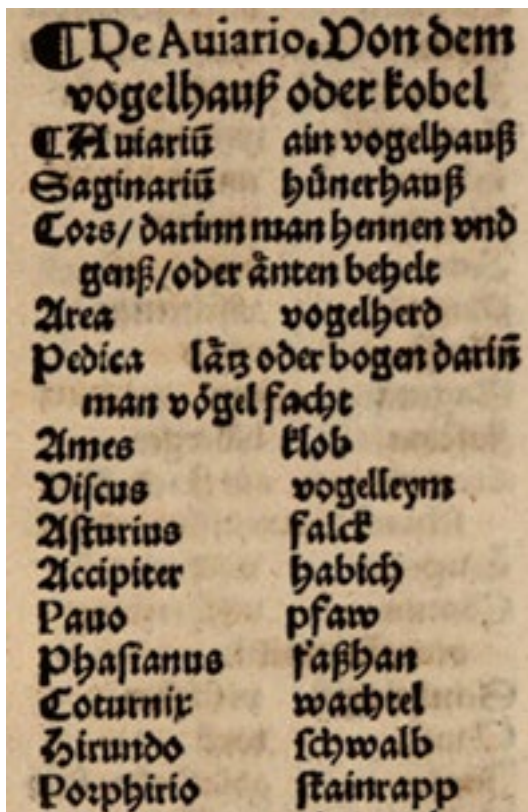 ¶ De Auiario. Von dem
vogelhauß oder kobel
¶ Auiariū ain vogelhauß
Saginariū hünerhauß
Cors/ darinn man hennen vnd
genß/oder änten behelt
Area vogelherd
Pedica lätz oder bogen darin̄
man vögel facht
Ames klob
Viſcus vogelleym
Aſturius falck
Accipiter habich
Pauo pfaw
Phaſianus faßhan
Coturnix wachtel
Hirundo ſchwalb
Porphirio ſtainrapp